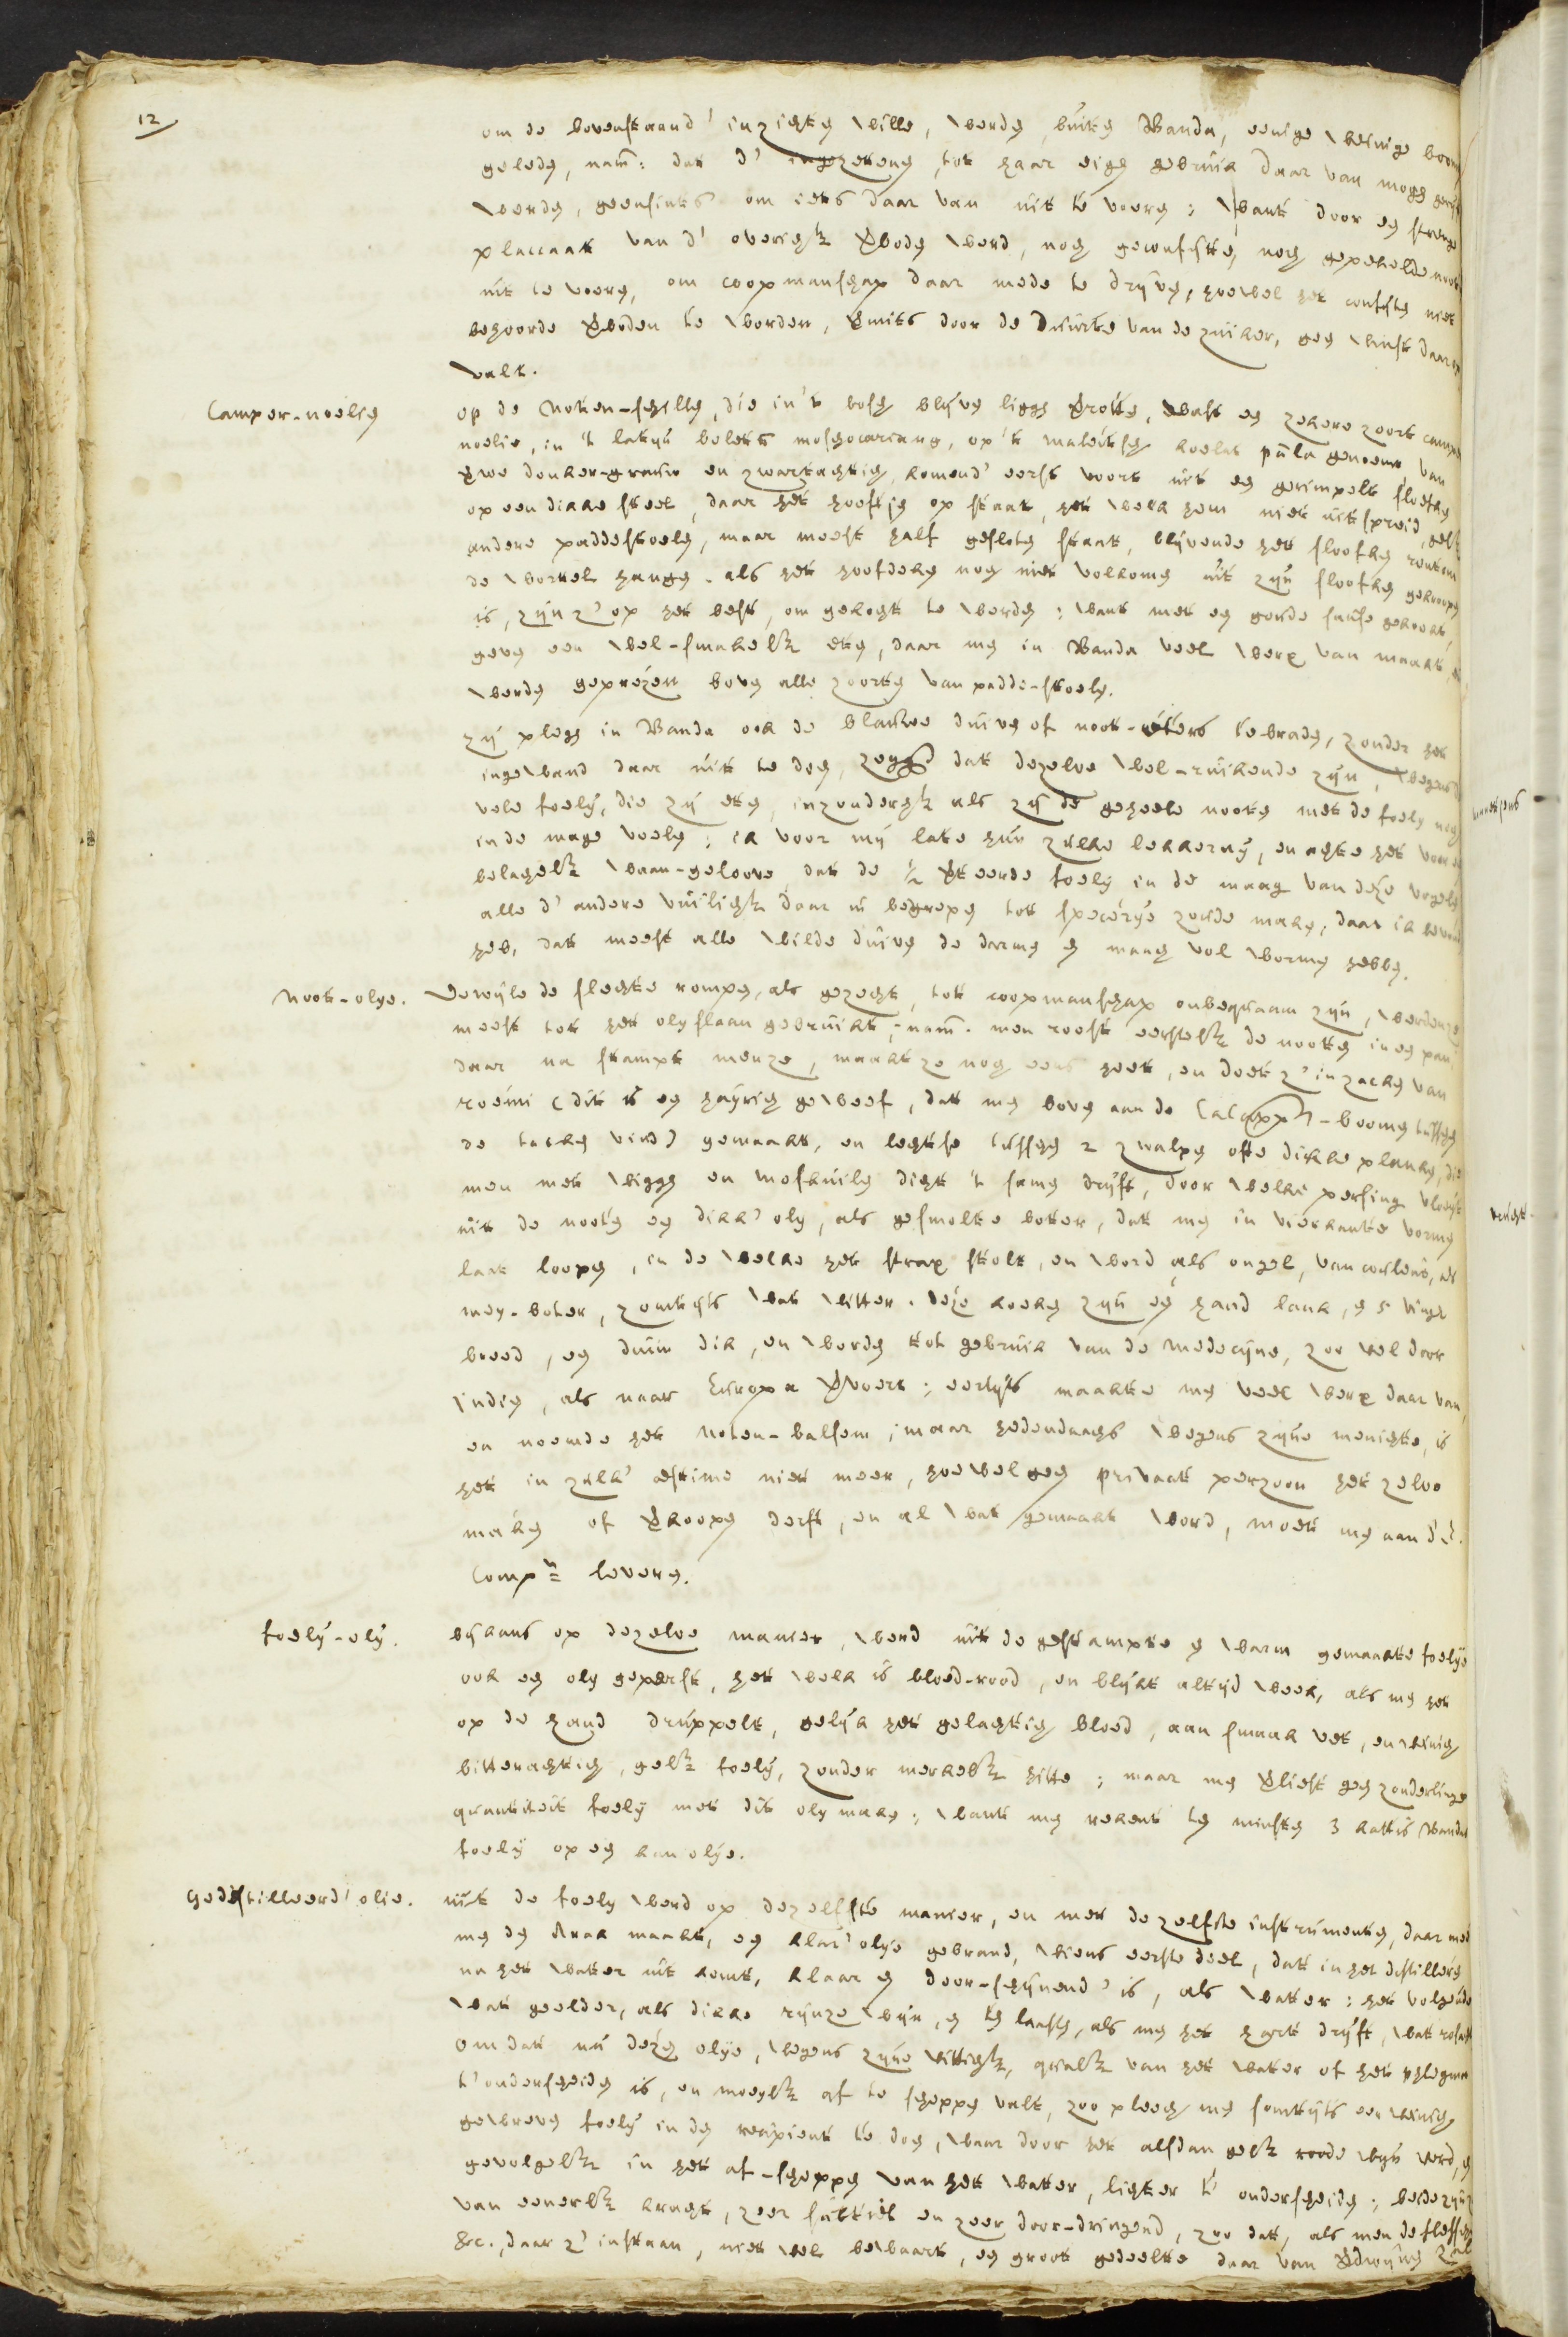 12
om de bovenstaand' inzichten wille, werden buiten Banda, eenige weinige boom
geleden, nam: dat d' ingezetene, tot haar eigen gebruik daar van mogen
werden, geensints om iets daar van uit te voeren; want door een strenge
placcaat van d' overicht verboden werd, noch geconfijtte, noch gepekelde noot
uit te voeren, om coopmanschap daar mede te dryven, hoewel het confijten niet
behoorde verboden te worden, vermits door de duurte van de zuiker, geen winst daar op
valt.
Camper-noelien
op de Noten-schillen, die in't bosch blijven liggen verrotte, wast een zekere zoort camper
noelie, in 't latijn boletus moschocarianus, op't maleitsch koelat pala genoemt, van
verwe donker-grauw en zwartachtich, komend' eerst voort uit een gerimpelt sloofken
op een dikke steel, daar het hooftje op staat, het welk hem niet uitspreid, gelijk
andere paddestoelen, maar meest half gesloten staat, blijvende het slooften rontom
de wortel hangen. als het hoofdeken nog niet volkomen uit zijn sloofken gekroopen
is, zijn z' op het best, om gekogt te werden; want met een goede sause gekookt,
geven een wel-smakelk eten, daar men in Banda veel werx van maakt, en
werden geprezen boven alle zoorten van padde-stoelen.
zij plegen in Banda ook de blauwe duiven of noot-eters te braden, zonder het
ingewand daar uit te doen, zeggende dat dezelve wel-ruikende zijn, wegens
vele foely, die zij eten, inzonderht als zij de geheele nooten met de foely nog
in de mage voelen; ik voor mij late hun zulke lekkernij, en achte het voor een
belachelk waan-geloove, dat de 1/2 verteerde foely in de maag van deze vogelen
alle d' andere vuilicht daar in begrepen tot specerije zoude maken, daar ik bevonden
heb, dat meest alle wilde duiven de darmen en maag vol wormen hebben.
Noot-olye.
Dewijle de slechte rompen, als gezecht, tot coopmanschap onbequaam zijn, werden ze
meest tot het oly slaan gebruikt; nam. men roost eerstelk de nooten in een pan,
daar na stampt men ze, maakt ze nog eens heet, en doet z' in zacken van
roemi (dit is een hayrich geweef, dat men boven aan de Calappus-boomen tusschen
de tacken vind) gemaakt, en legt se tusschen 2 zwalpen ofte dikke planken, die
men met wiggen en moskuilen dicht 't samen drijft, door welke persing vloeit
uit de nooten een dikk' oly, als gesmolte boter, dat men in vierkante vormen
laat loopen, in de welke het strax stolt, en word als ongel, van couleur, als
mey-boter, zomtijts wat witter. deze koeken zijn een hand lank, en 5 vinger
breed, een duim dik, en worden tot gebruik van de medecijne, zoo wel door
Indien, als naar Europa vervoert; eertijts maakte men veel werx daar van,
en noemde het Noten-balsem, maar hedendaachs wegens zijne menichte, is
het in zulk' estime niet meer, hoewel geen privaat perzoon het zelve
maken of verkoopen derft, en al wat gemaakt word, moet men aan d' E.
Compn leveren.
foely-oly.
bijkans op dezelve manier, werd uit de gestampte en warm gemaakte foelye
ook een oly geperst, het welk is bloed-rood, en blijkt altijd week, als men het
op de hand druppelt, gelijk het gelachtich bloed, aan smaak vet, en weinich
bitterachtich, gelk foely, zonder merkelk hitte; maar men verliest geen zonderlinge
quantiteit foely met dit oly maken; want men rekent ten minsten 3 kattis Bandas
foely op een kan olye.
Gedistilleerd' olie.
uit de foely werd op dezelfste manier, en met de zelfste instrumenten, daar med
men den Arak maakt, een klar' olye gebrand, wiens eerste deel, dat in het distilleren
na het water uit komt, klaar en door-schijnend' is, als water: het volgende
wat geelder, als dikke rijnze wijn, en ten laasten, als men het hart drijft, wat
Omdat nu dezen olye, wegens zijne witticht, qualk van het water of het phlegma
t' onderscheiden is, en moeylk af te scheppen valt, zoo pleech men somtijts een weinich
gewreven foely in den recipient te doen, waar door het alsdan gelk roode wijn werd, en
gevolgelk in het af-scheppen van het water, lichter t' onderscheiden; beide zijn z'
van eenerlk kracht, zeer subtiel en zeer door-dringend, zoo dat, als men de flesschen
&c., daar z' instaan, niet wel bewaart, een groot gedeelte daar van verdwijnen zal